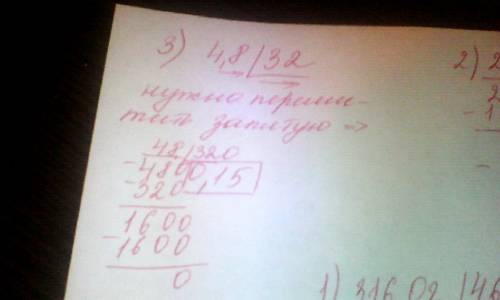 3) 4,8 | 32
нужно переми-
тить запятую =>
48 | 320
- 480 | 0,15
- 320
1600
- 1600
0
2) 2
2
- 1
1) 3160